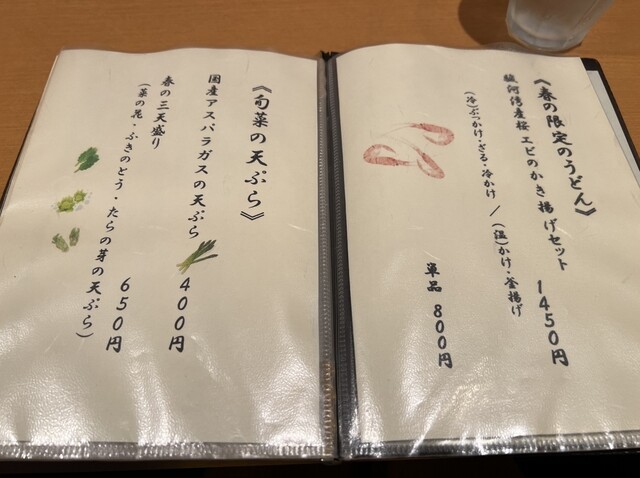 《春の限定のうどん》
駿河湾産桜エビのかき揚げセット 1450円
(冷)ぶっかけ・ざる・冷かけ／(温)かけ・釜揚げ
単品 800円
《旬菜の天ぷら》
国産アスパラガスの天ぷら 400円
春の三天盛り 650円
(菜の花・ふきのとう・たらの芽の天ぷら)